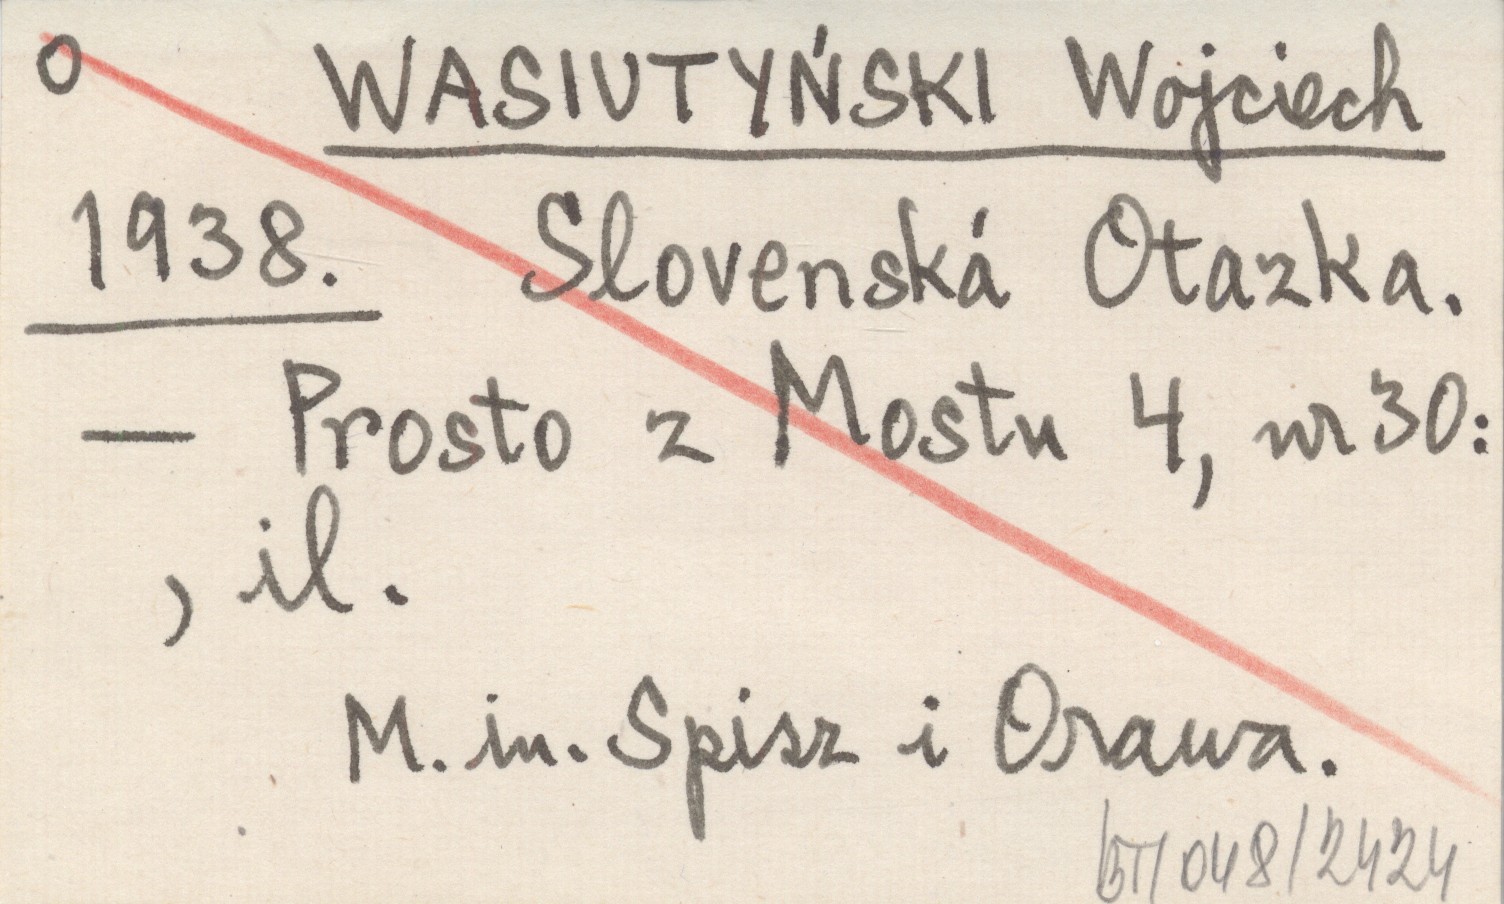 o WASIUTYŃSKI Wojciech
1938. Slovenská Otazka.
— Prosto z Mostu 4, nr 30:
, il.
M. in. Spisz i Orawa.
/048/2424